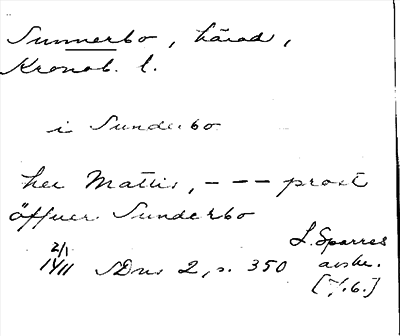 Sunnerbo, härad,
Kronob. l.
i Sunderbo
her Mattis, - - - prost
öffuer Sunderbo
2/1 1411 SDns 2, s. 350
L. Sparres
avskr.